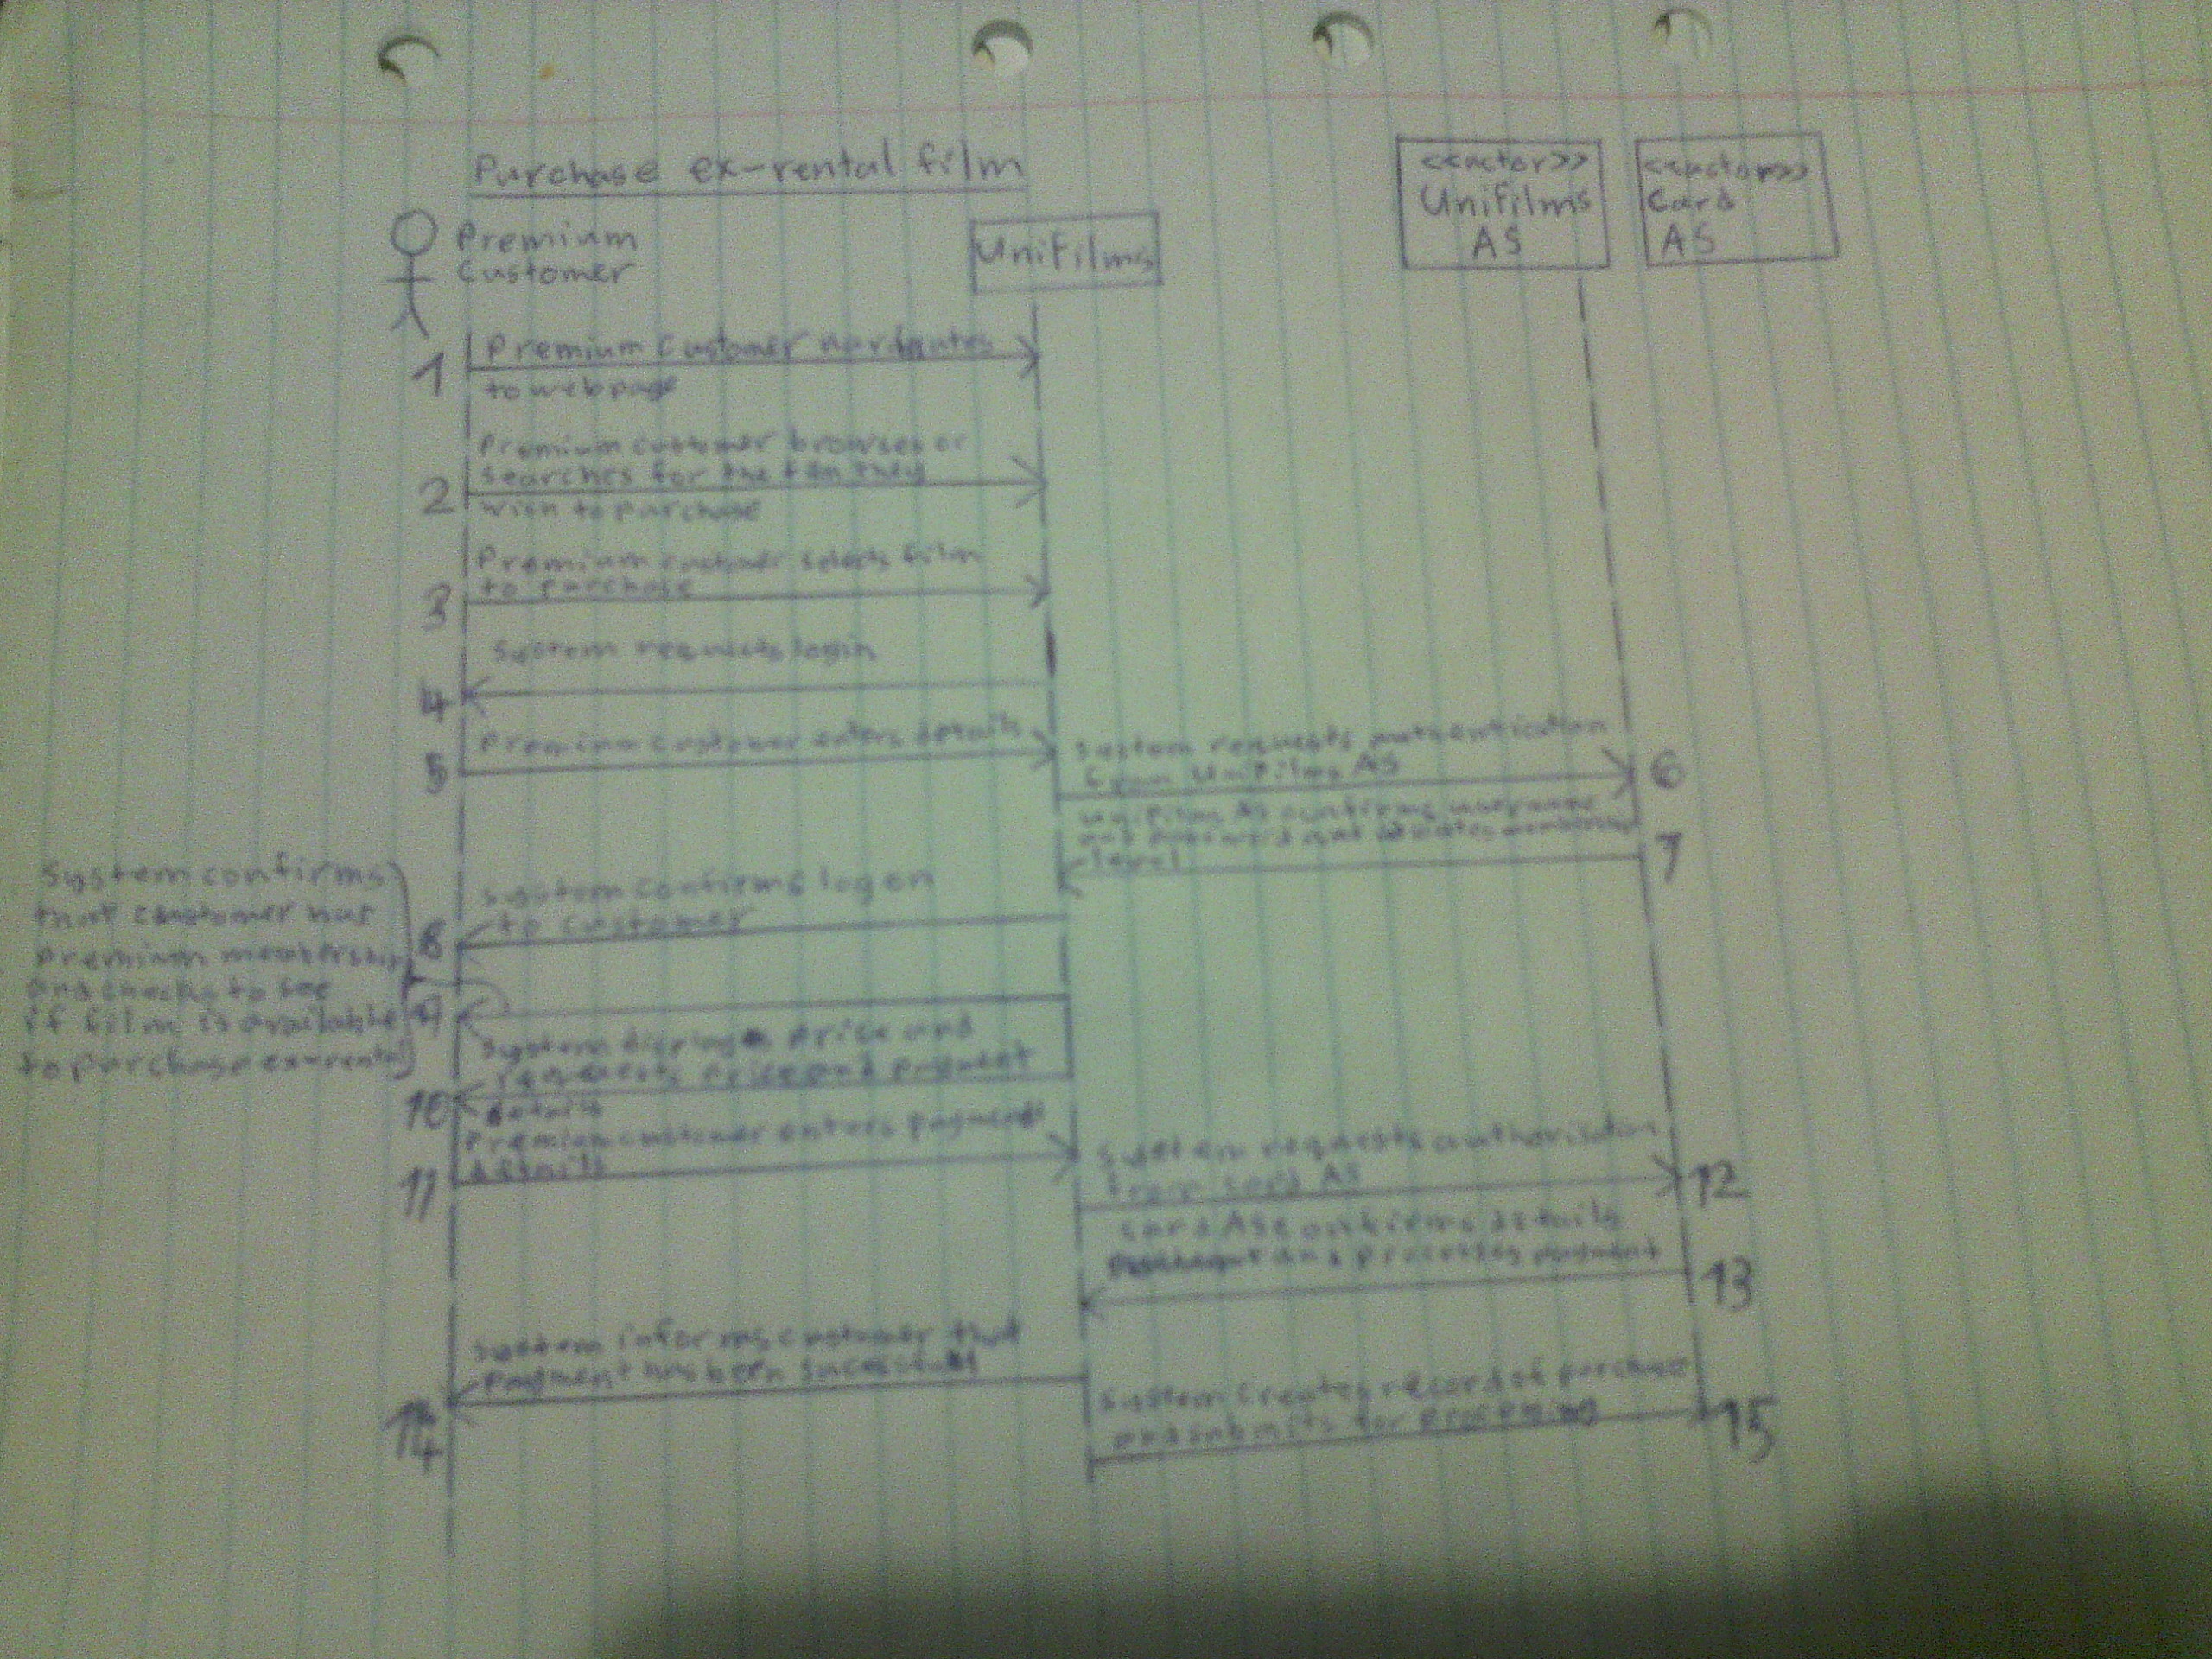 Purchase ex-rental film
<<actor>>
Unifilms
AS
<<actor>>
Card
AS
Premium
Customer
Unifilms
1
Premium Customer
to webpage
2
Premium customer browses or
searches for the film they
wish to purchase
3
Premium customer selects film
to purchase
4
System requests login
5
Premium customer enters details
System requests authentication
from Unifilms AS
6
Unifilms AS confirms username
and password and membership
level
7
System confirms
that customer has
premium membership
and checks to see
if film is available
to purchase ex-rental
8
System confirms log on
to customer
9
System displays price and
requests price and payment
details
10
Premium customer enters payment
details
11
System requests authorisation
from card AS
12
Card AS confirms details
and processes payment
13
System informs customer that
payment has been
14
System creates record of purchase
and submits for
15